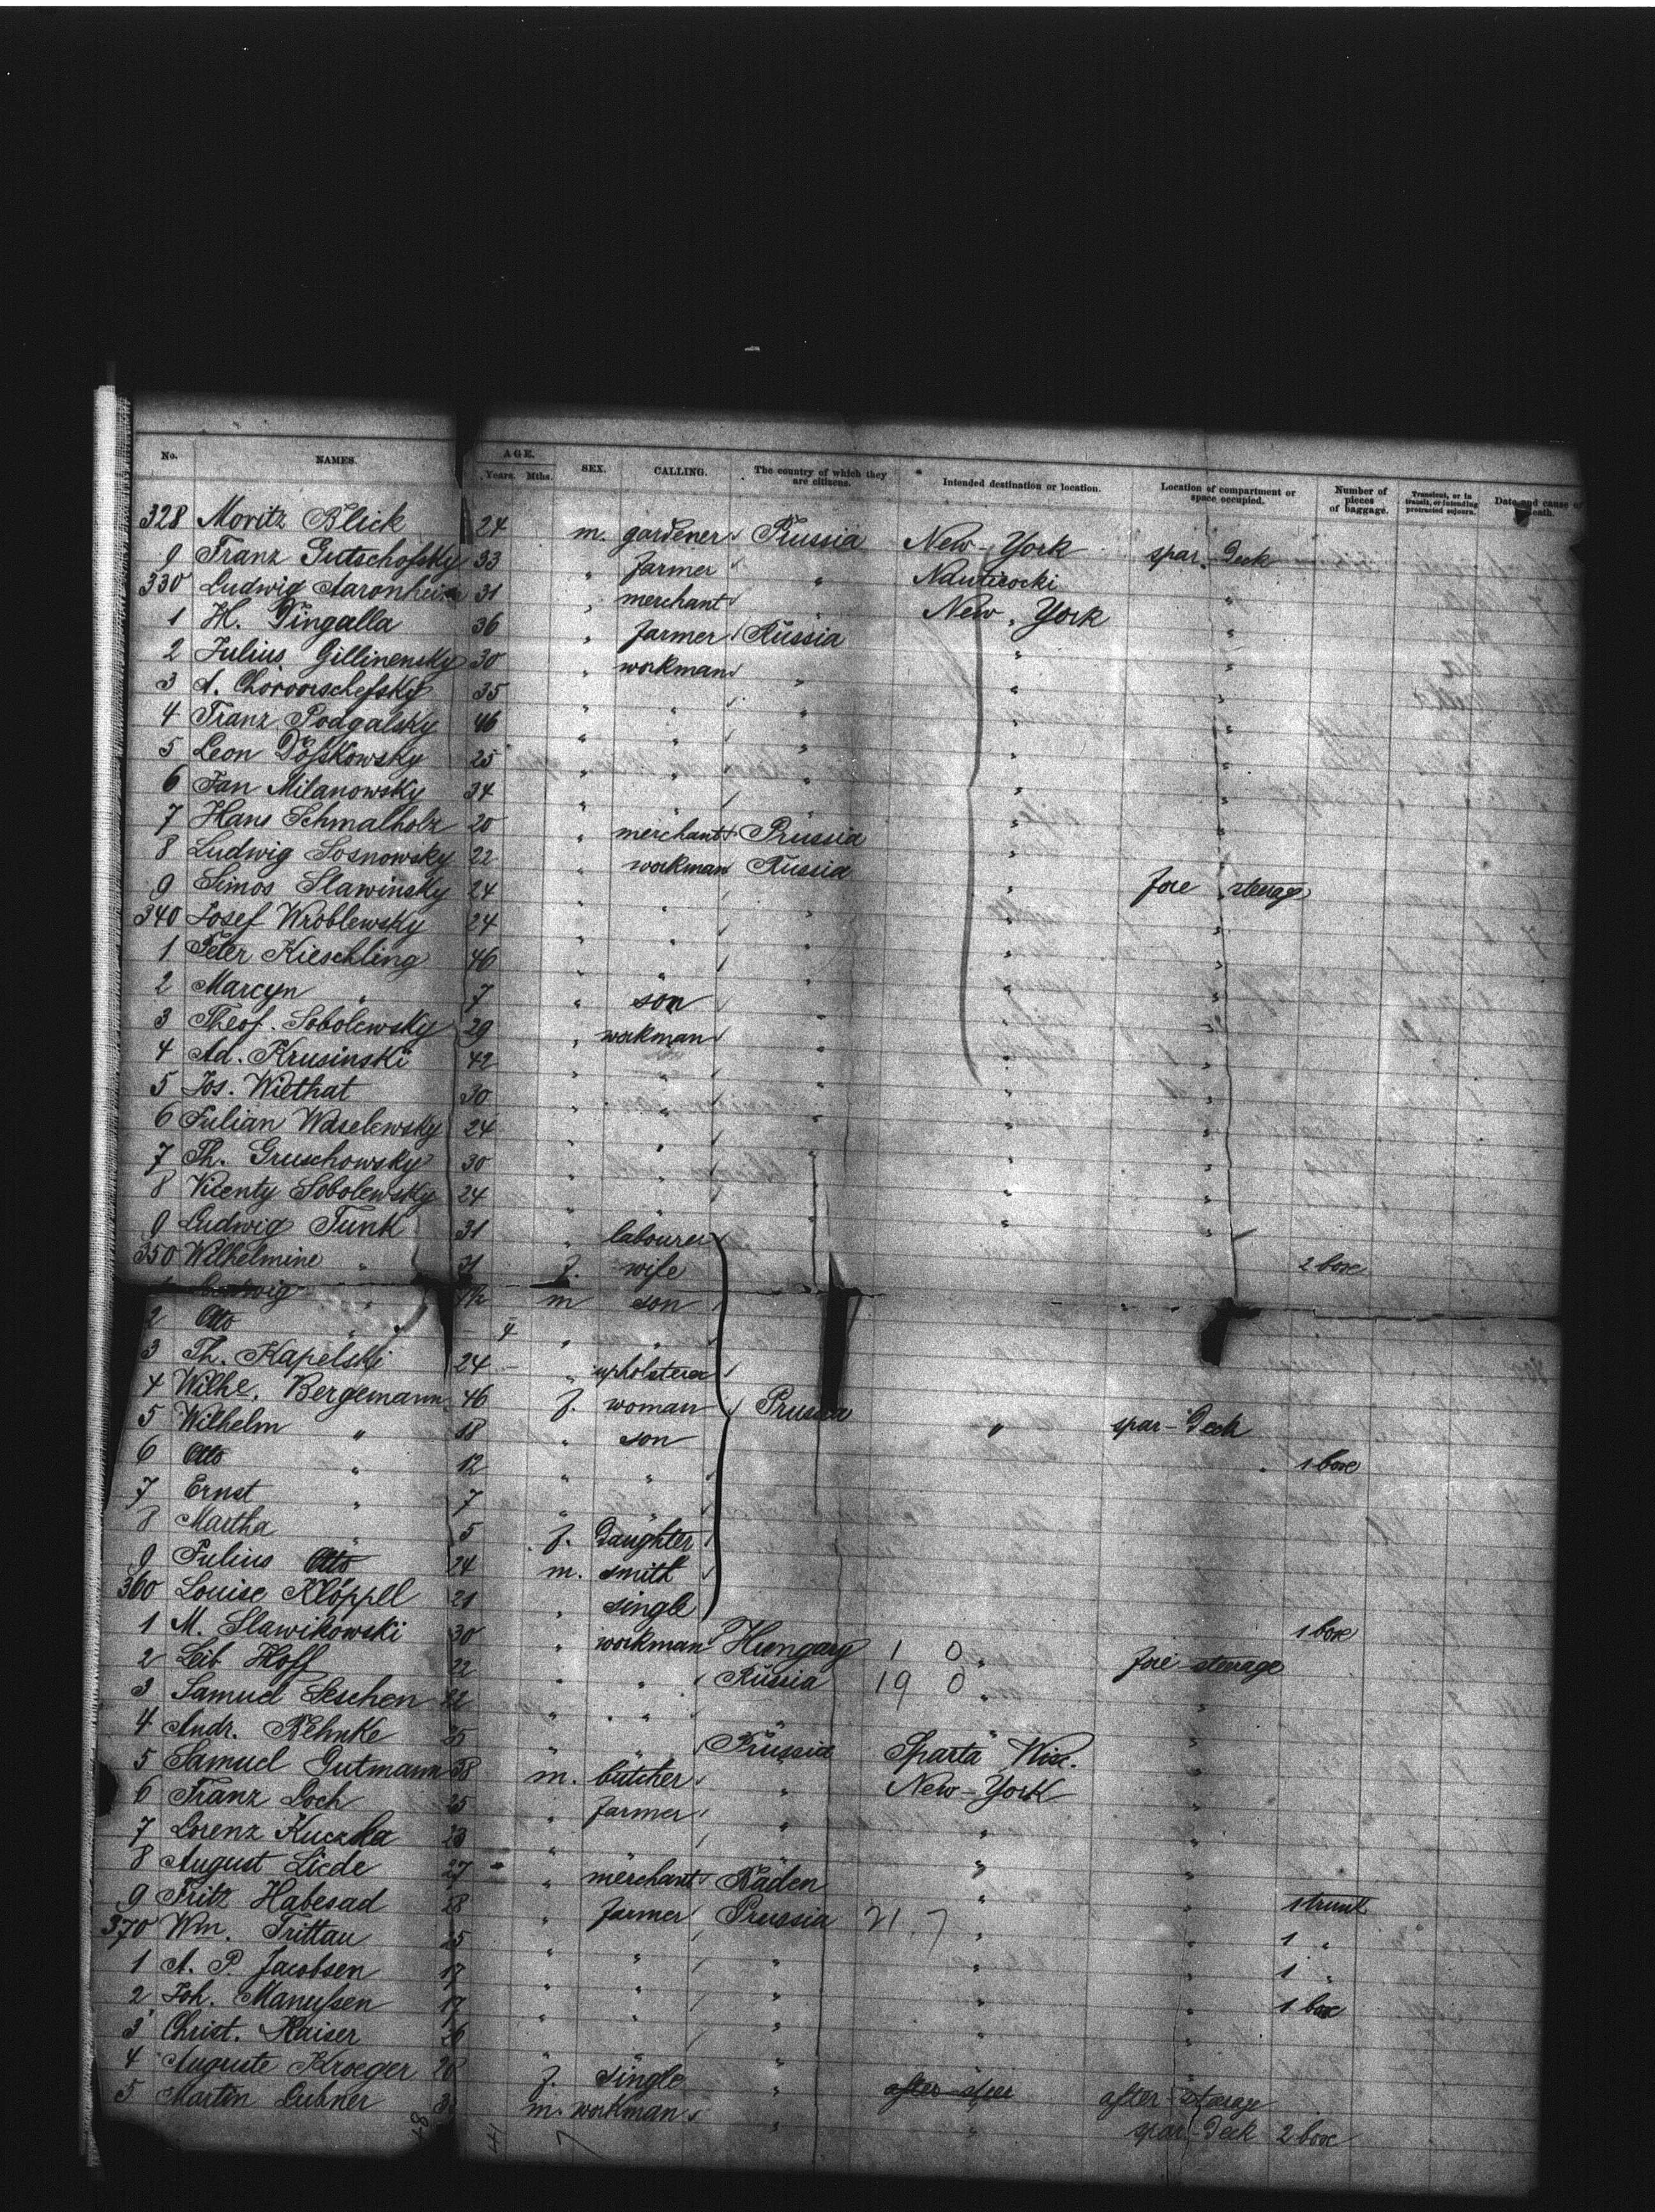 No. NAMES. AGE. Years. Mths. SEX. CALLING. The country of which they are citizens. Intended destination or location. Location of compartment or space occupied. Number of pieces of baggage. Transient, or in transit, or intending protracted sojourn. Date and cause of death.
328 Moritz Blick 24 m. gardener Prussia New-York spar-Deck
9 Franz Gutschofsky 33 " farmer "
330 Ludwig Aaronheim 31 " merchant New York "
1 H. Pingalla 36 " farmer Russia "
2 Julius Gillinensky 30 " workman " " "
3 A. 35 " " " " "
4 Franz Podgalsky 46 " " " " "
5 Leon 25 " " " " "
6 Jan Milanowsky 34 " " " " "
7 Hans Schmalholz 20 " merchant Prussia " "
8 Ludwig Sosnowsky 22 " workman Russia "
9 Simos Slawinsky 24 " " " " fore steerage
340 Josef Wroblewsky 24 " " " " "
1 Peter Kieschling 46 " " " " "
2 Marcyn " 7 " son " " "
3 Theof. Sobolewsky 29 " workman " " "
4 Ad. Krusinski 42 " " " " "
5 Jos. Wiethat 30 " " " " "
6 Julian Waselewsky 24 " " " " "
7 Th. Gruschowsky 30 " " " " "
8 Vicenty Sobolewsky 24 " " " " "
9 Ludwig Funk 31 " labourer
350 Wilhelmine " 31 f. wife 2 box
1 Ludwig " m son
2 Otto " 4 " "
3 Th. Kapelski 24 " upholsterer
4 Wilhe. Bergemann 46 f. woman Prussia
5 Wilhelm " 18 " son " spar-Deck
6 Otto " 12 " " " 1 box
7 Ernst " 7 " "
8 Martha " 5 f. Daughter
9 Julius Otto 24 m. smith
360 Louise Klöppel 21 " single
1 M. Slawikowski 30 " workman Hungary 1 0 " 1 box
2 Leib Hoff 22 " " Russia 19 0 " fore steerage
3 Samuel Leschen 22 " " "
4 Andr. Behnke 25 " " Prussia Sparta Wis. "
5 Samuel Gutmann 38 m. butcher " New-York "
6 Franz Loch 25 " farmer " "
7 Lorenz 23 " " " "
8 August Liede 27 " merchant Baden " "
9 Fritz Habesad 28 " farmer Prussia 21 7 " " 1 trunk
370 Wm. Trittau 25 " " " " " 1 "
1 A. P. Jacobsen 17 " " " " " 1 "
2 Joh. Manussen 17 " " " " " 1 box
3 Christ. Kaiser 26 " " " " "
4 Auguste Kroeger 20 f. single " after steer after steerage
5 Martin Lubner m. workman " " spar-Deck 2 box
48 41 7